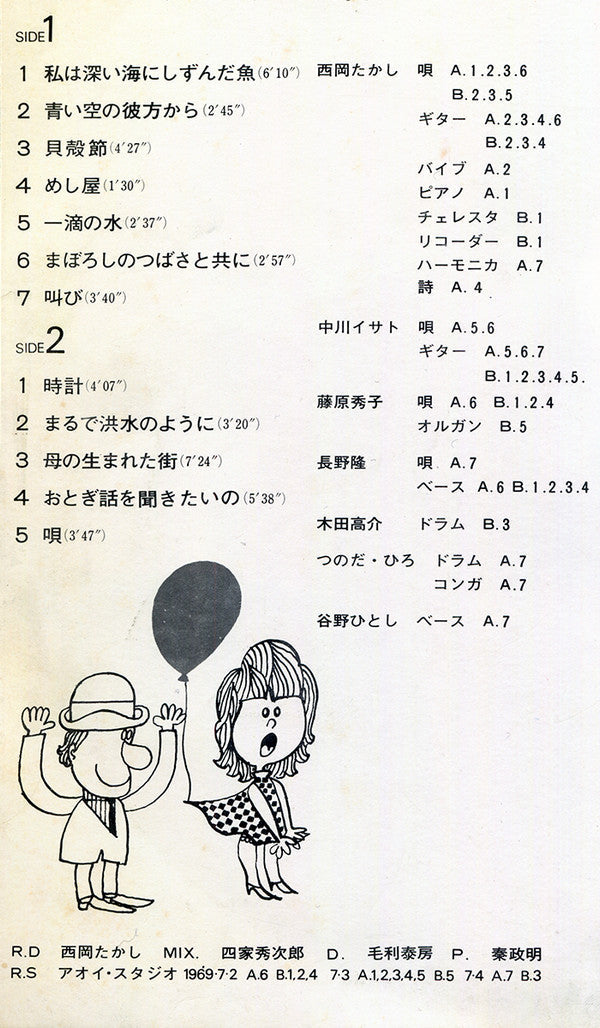 SIDE1
1 私は深い海にしずんだ魚(6′10″)
2 青い空の彼方から(2′45″)
3 貝殻節(4′27″)
4 めし屋(1′30″)
5 一滴の水(2′37″)
6 まぼろしのつばさと共に(2′57″)
7 叫び(3′40″)
SIDE2
1 時計(4′07″)
2 まるで洪水のように(3′20″)
3 母の生まれた街(7′24″)
4 おとぎ話を聞きたいの(5′38″)
5 唄(3′47″)
西岡たかし 唄 A.1.2.3.6
B.2.3.5
ギター A.2.3.4.6
B.2.3.4
バイブ A.2
ピアノ A.1
チェレスタ B.1
リコーダー B.1
ハーモニカ A.7
詩 A.4
中川イサト 唄 A.5.6
ギター A.5.6.7
B.1.2.3.4.5.
藤原秀子 唄 A.6 B.1.2.4
オルガン B.5
長野隆 唄 A.7
ベース A.6 B.1.2.3.4
木田高介 ドラム B.3
つのだ・ひろ ドラム A.7
コンガ A.7
谷野ひとし ベース A.7
R.D 西岡たかし MIX. 四家秀次郎 D. 毛利泰房 P. 秦政明
R.S アオイ・スタジオ 1969・7・2 A.6 B.1,2,4 7・3 A.1,2,3,4,5 B.5 7・4 A.7 B.3